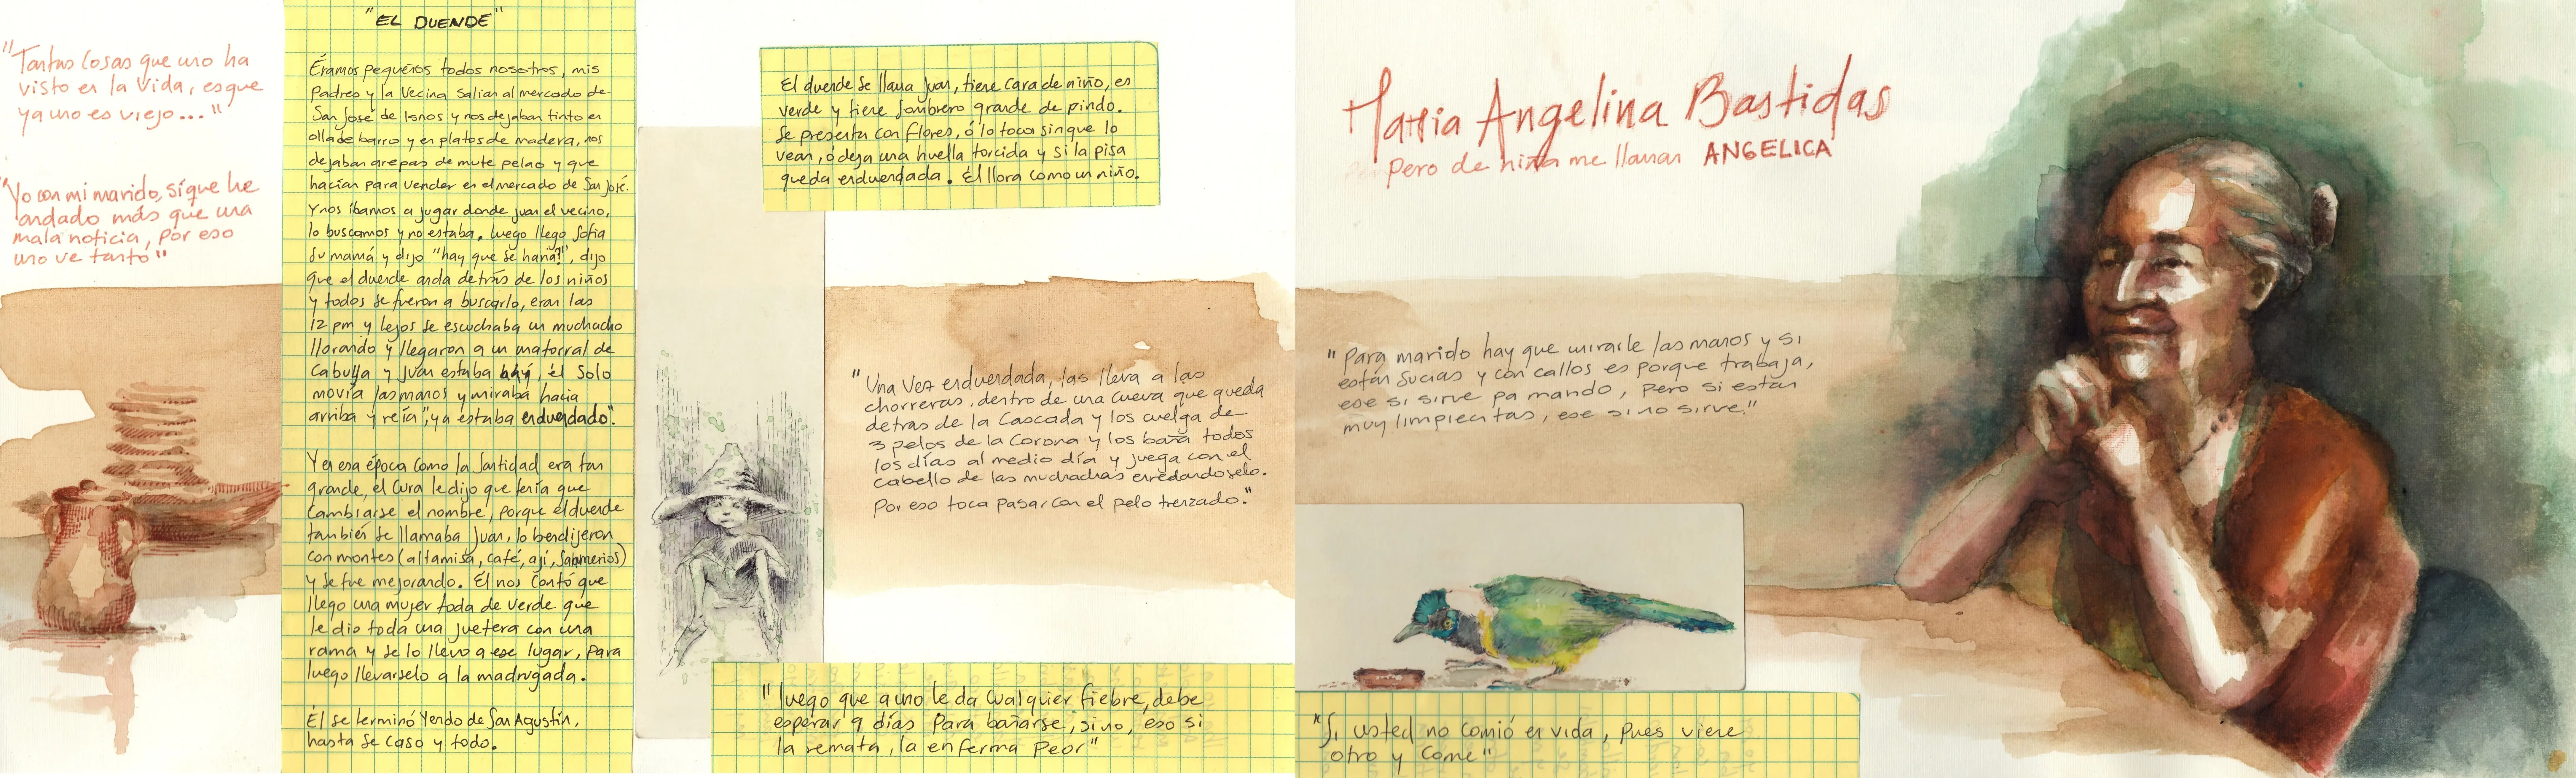 "Tantas cosas que uno ha
visto en la vida, es que
ya uno es viejo..."
"Yo con mi marido, si que he
andado más que una
mala noticia, por eso
uno ve tanto"
"EL DUENDE"
Éramos pequeños todos nosotros, mis
Padres y la Vecina salian al mercado de
San José de Isnos y nos dejaban tinto en
olla de barro y en platos de madera, nos
dejaban arepas de mute pelao y que
hacían para vender en el mercado de San José.
Y nos íbamos a jugar donde juan el vecino,
lo buscamos y no estaba. luego llego Sofia
su mamá y dijo "hay que se haría?", dijo
que el duende anda detrás de los niños
y todos se fueron a buscarlo, eran las
12 pm y lejos se escuchaba un muchacho
llorando y llegaron a un matorral de
Cabuya y Juan estaba hay, él solo
movía las manos y miraba hacia
arriba y reía, "ya estaba enduendado".
Y en esa época como la Santidad era tan
grande, el Cura le dijo que tenía que
Cambiarse el nombre, porque el duende
también se llamaba Juan, lo bendijeron
con montes (altamisa, café, ají, Sahumerios)
y se fue mejorando. Él nos contó que
llego una mujer toda de verde que
le dio toda una juetera con una
rama y se lo llevo a ese lugar, para
luego llevarselo a la madrugada.
Él se terminó Yendo de San Agustín,
hasta se caso y todo.
El duende se llama Juan, tiene cara de niño, es
verde y tiene sombrero grande de pindo.
Se presenta con flores, ó lo toca sin que lo
vean, ó deja una huella torcida y si la pisa
queda enduendada. Él llora como un niño.
"Una vez enduendada, las lleva a las
chorreras, dentro de una cueva que queda
detras de la Cascada y los cuelga de
3 pelos de la Corona y los baña todos
los días al medio día y juega con el
cabello de las muchachas enredandoselo.
Por eso toca pasar con el pelo trenzado."
"luego que a uno le da cualquier fiebre, debe
esperar 9 días para bañarse, sino, eso si
la remata, la enferma peor"
Maria Angelina Bastidas
Pero de niña me llaman ANGELICA
"Para marido hay que mirarle las manos y si
están sucias y con callos es porque trabaja,
ese si sirve pa mando, pero si están
muy limpiecitas, ese si no sirve."
"Si usted no comió en vida, pues viene
otro y come"